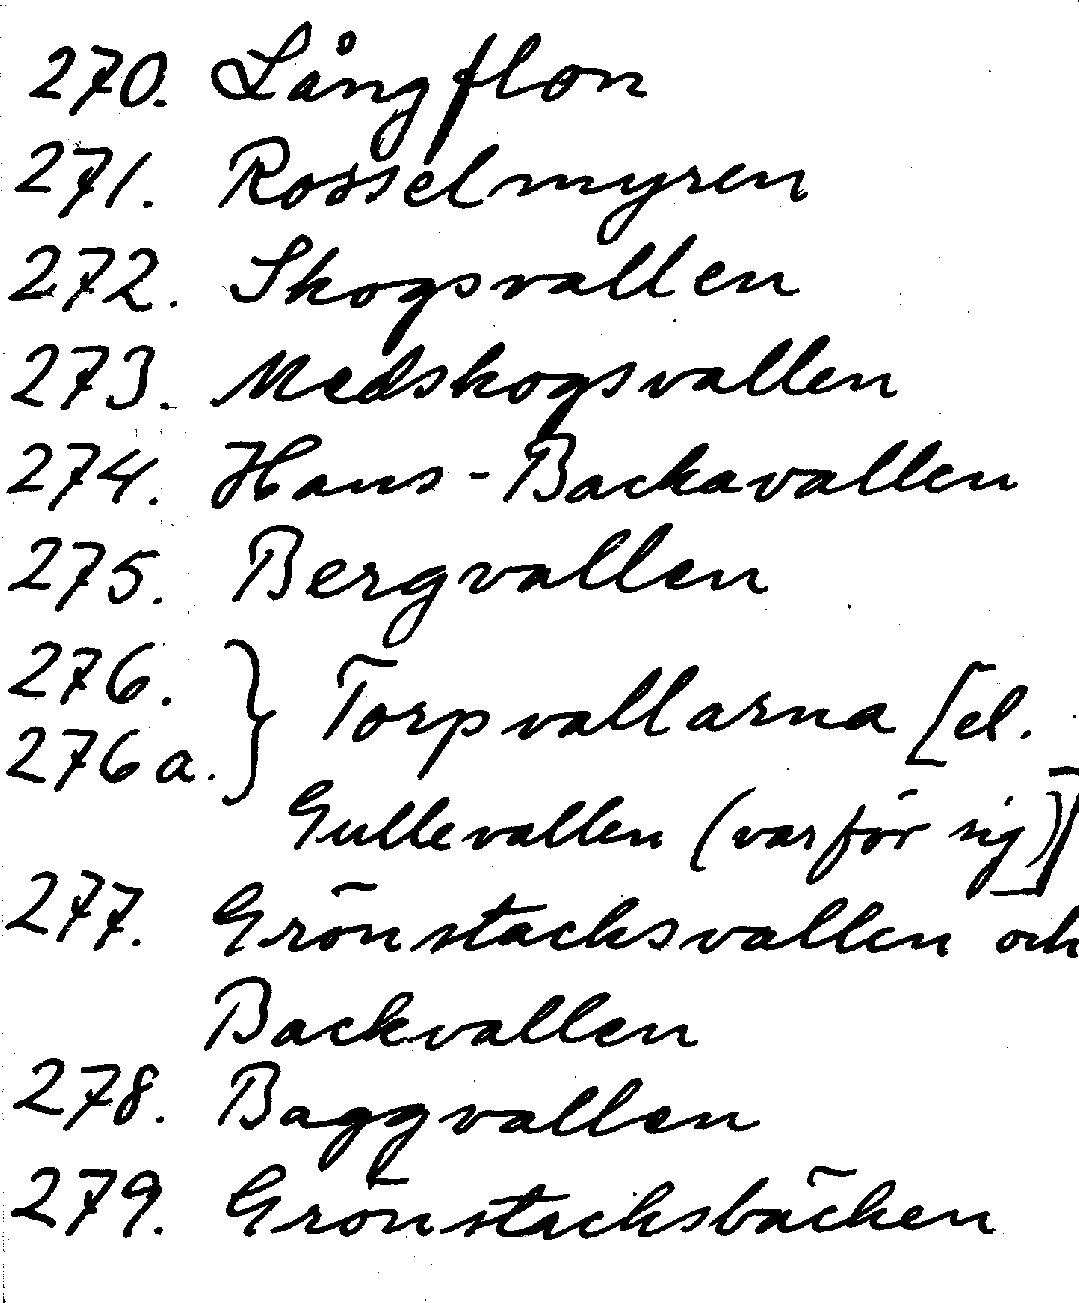 270. Långflon
271. Rosselmyren
272. Skogsvallen
273. Medskogsvallen
274. Hans-Backavallen
275. Bergvallen
276. } Torpvallarna [el.
276a.
Gullevallen (var för sig)]
277. Grönstacksvallen och
Backvallen
278. Baggvallen
279. Grönstacksbäcken